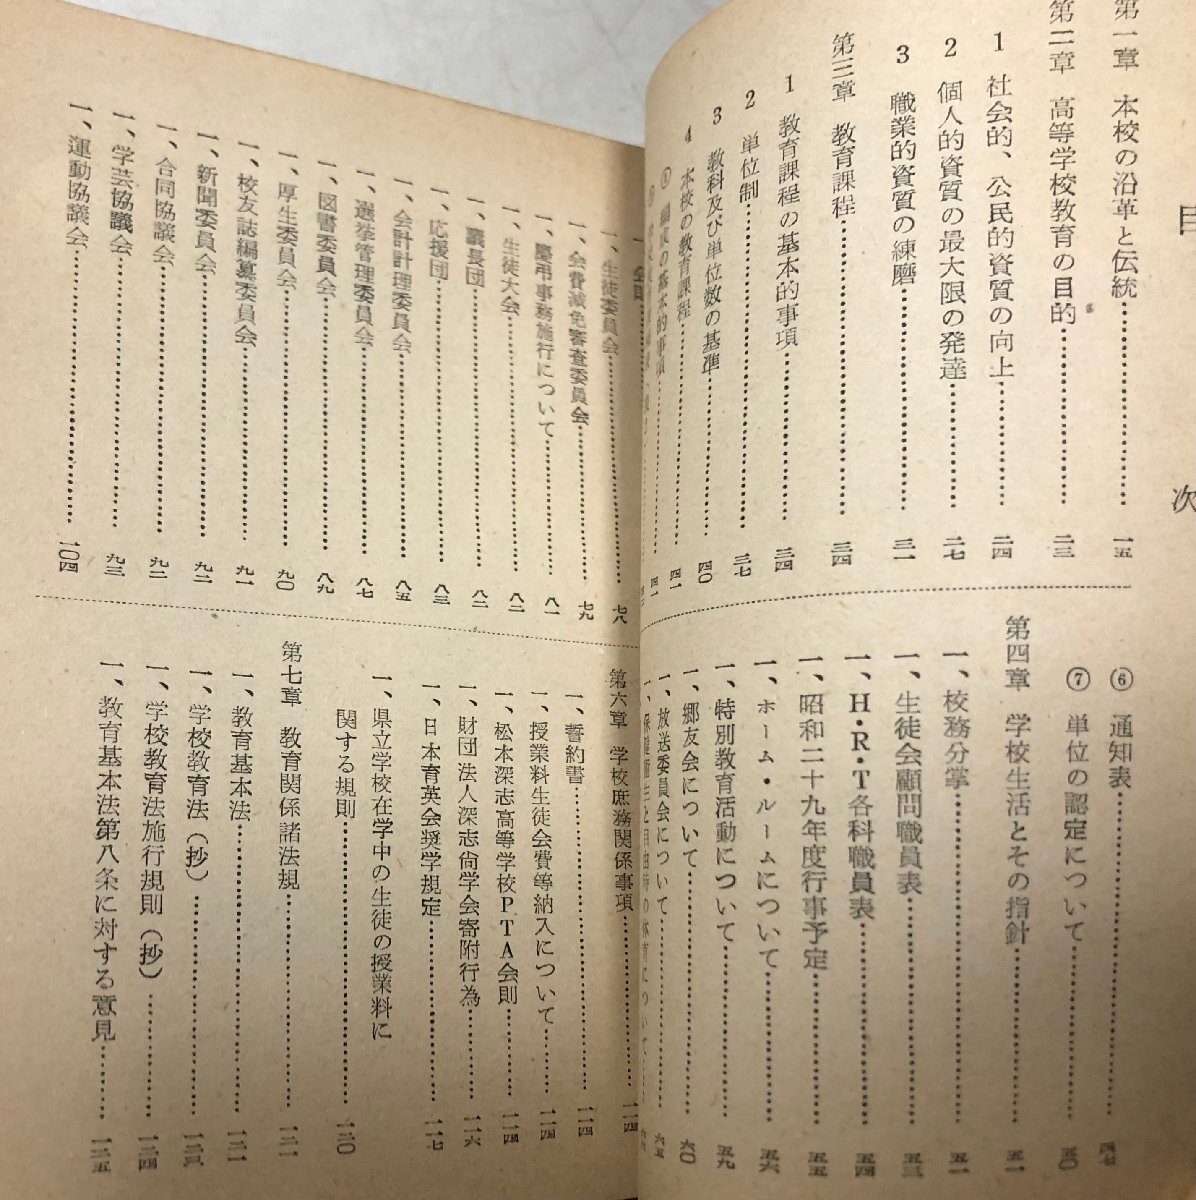 目次
第一章 本校の沿革と伝統……………一五
第二章 高等学校教育の目的……………二三
1 社会的、公民的資質の向上……………二四
2 個人的資質の最大限の発達……………二七
3 職業的資質の練磨……………三一
第三章 教育課程……………三四
1 教育課程の基本的事項……………三四
2 単位制……………三七
3 教科及び単位数の基準……………四〇
4 本校の教育課程……………四一
① 編成の基本的事項……………四一
⑥ 通知表……………四七
⑦ 単位の認定について……………五〇
第四章 学校生活とその指針……………五一
一、校務分掌……………五一
一、生徒会顧問職員表……………五三
一、H・R・T各科職員表……………五四
一、昭和二十九年度行事予定……………五五
一、ホーム・ルームについて……………五六
一、特別教育活動について……………五九
一、郷友会について……………六〇
一、放送委員会について……………六五
一、生徒委員会……………七八
一、会費減免審査委員会……………七九
一、慶弔事務施行について……………八一
一、生徒大会……………八二
一、議長団……………八二
一、応援団……………八三
一、会計計理委員会……………八五
一、選挙管理委員会……………八七
一、図書委員会……………八九
一、厚生委員会……………九〇
一、校友誌編纂委員会……………九一
一、新聞委員会……………九二
一、合同協議会……………九二
一、学芸協議会……………九三
一、運動協議会……………一〇四
第六章 学校庶務関係事項……………一一四
一、誓約書……………一一四
一、授業料生徒会費等納入について……………一一四
一、松本深志高等学校PTA会則……………一一四
一、財団法人深志尙学会寄附行為……………一一六
一、日本育英会奨学規定……………一一七
一、県立学校在学中の生徒の授業料に
関する規則……………一二〇
第七章 教育関係諸法規……………一二一
一、教育基本法……………一二一
一、学校教育法(抄)……………一二三
一、学校教育法施行規則(抄)……………一二四
一、教育基本法第八条に対する意見……………一二五